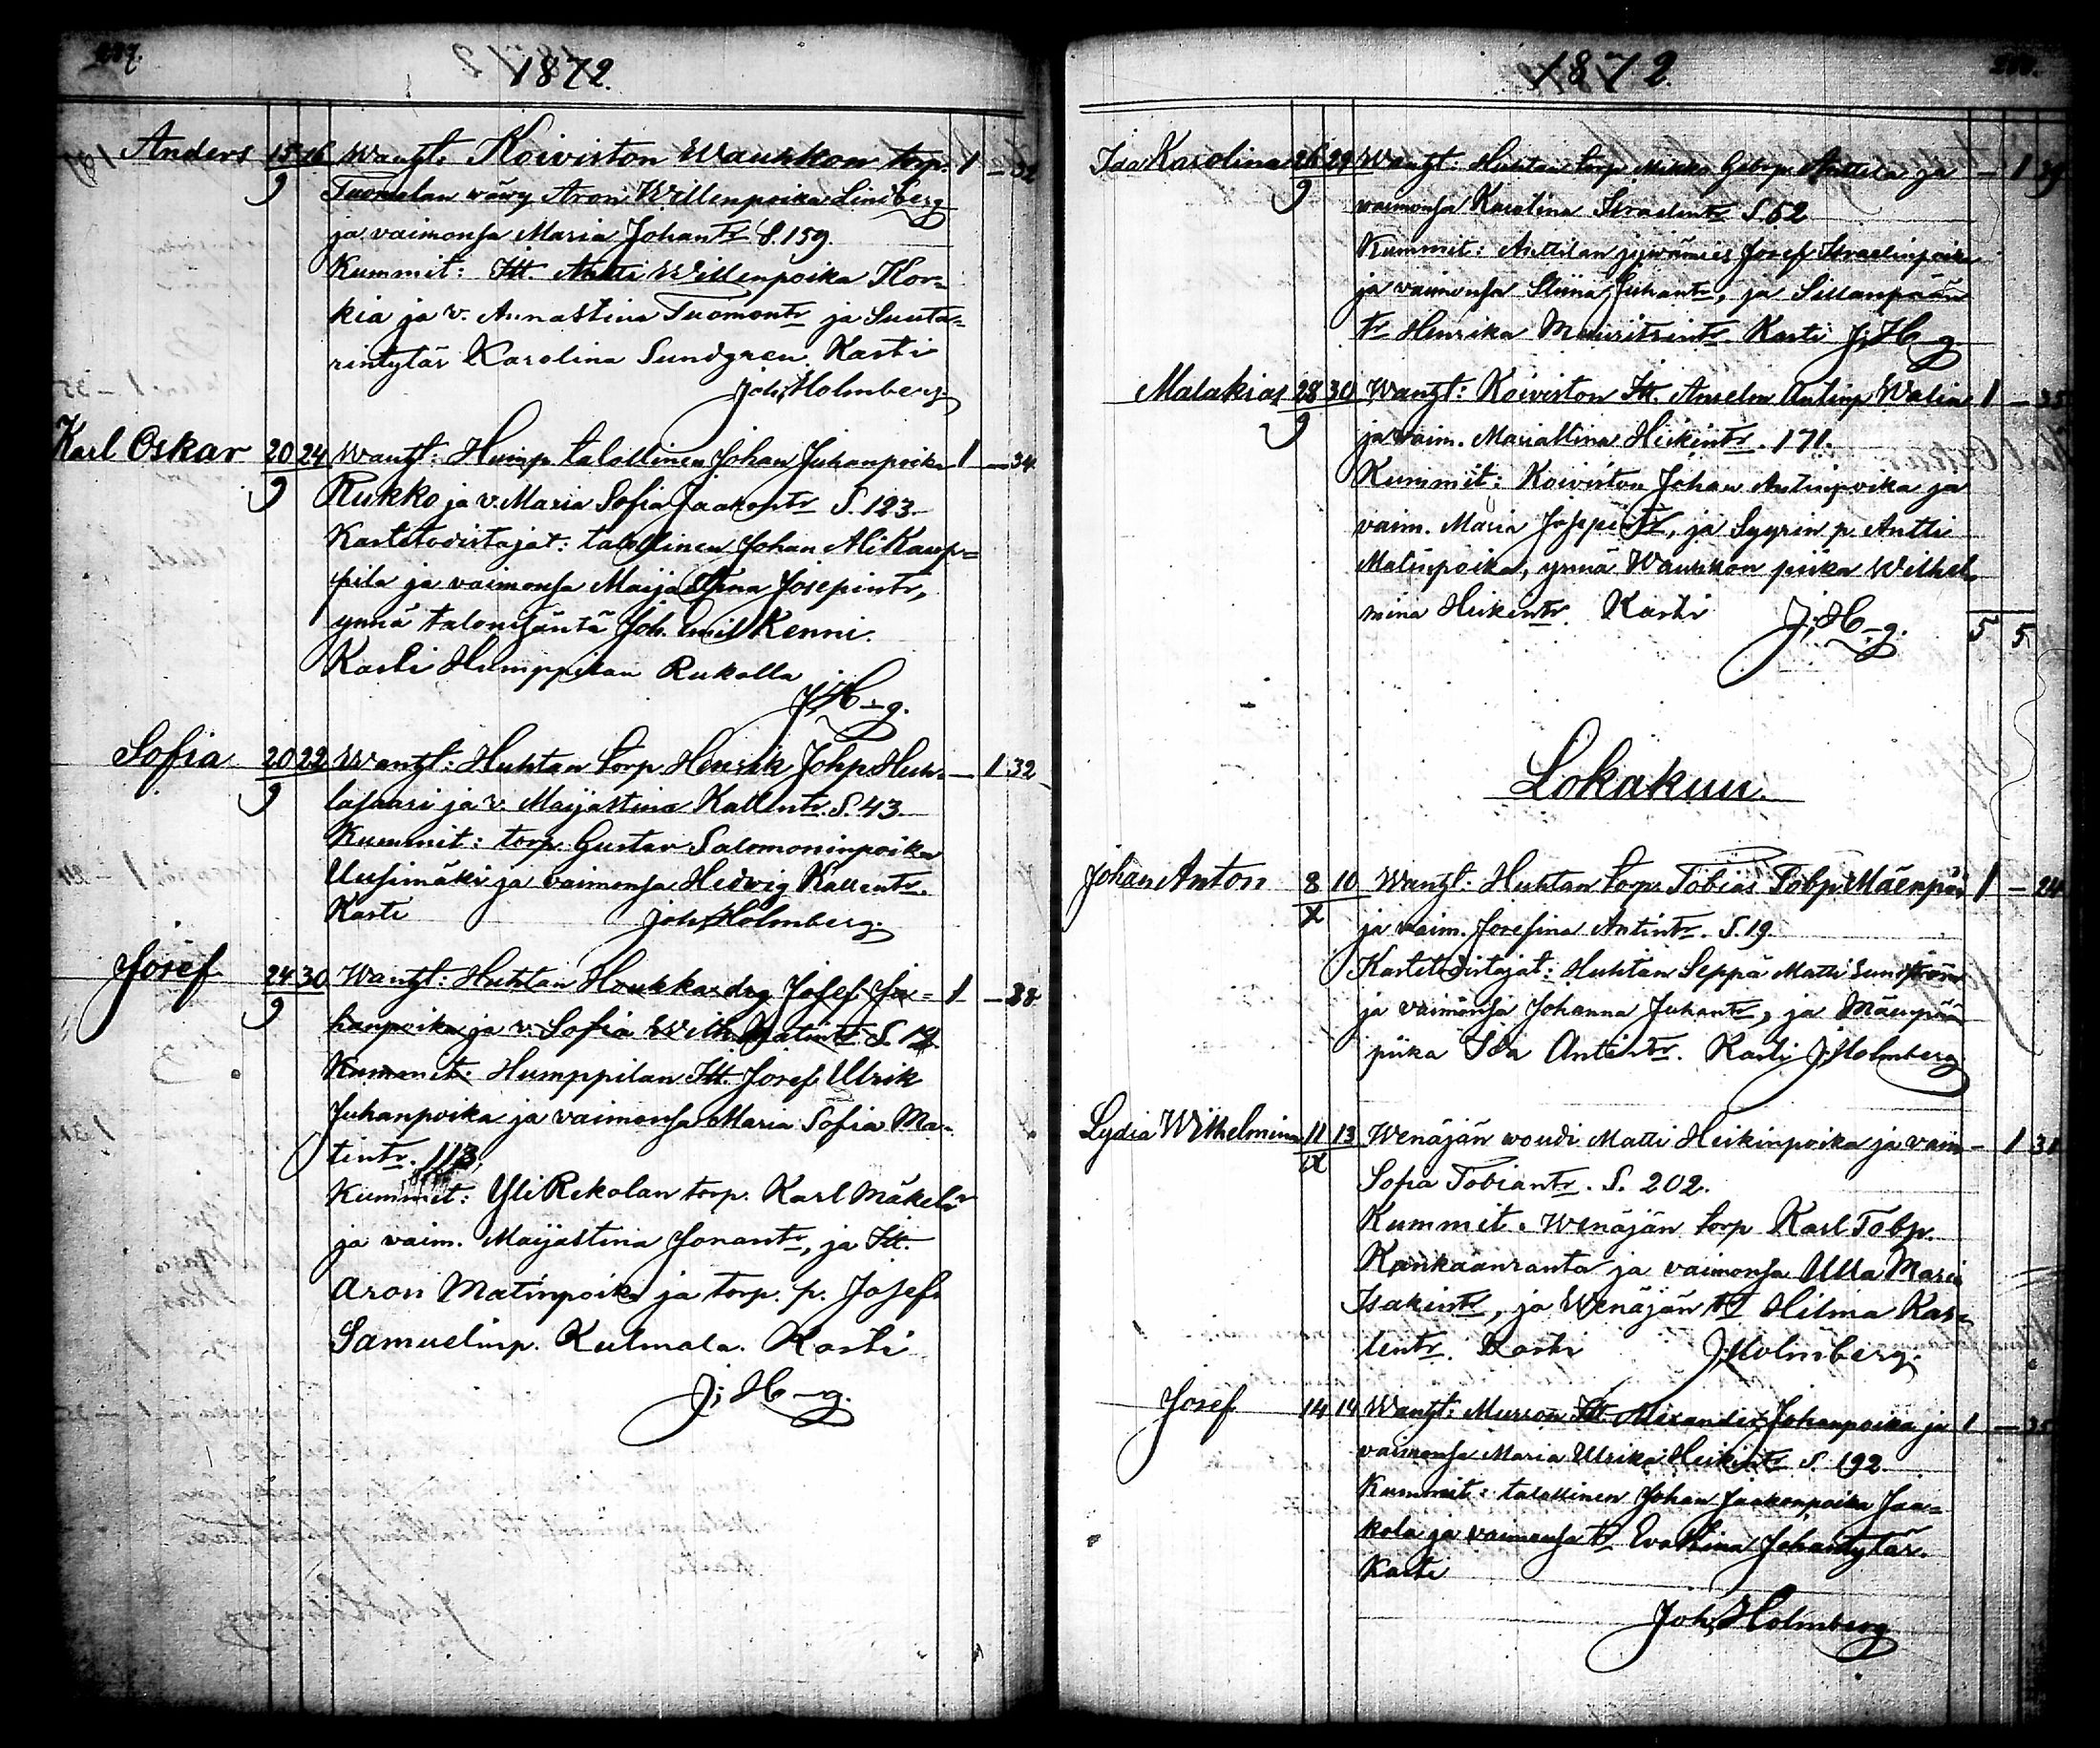 1872.
Anders 15 16 Wanht: Koiviston Wauhkon torp. 1 — 32
9 Tuomolan wäwy Aron Willenpoika Lindberg
ja vaimonsa Maria Johantr S. 159.
Kummit: Itt. Antti Willenpoika Kor-
kia ja v. Annastina Tuomontr ja Suuta-
rintytär Karolina Sundgren. Kasti
Joh. Holmberg.
Karl Oskar 20 24 Wanht: Hump. talollinen Johan Juhanpoika 1 — 34
9 Rukko ja v. Maria Sofia Jaakontr S. 123.
Kastetodistajat: talollinen Johan AliKaup-
pila ja vaimonsa Maijastina Josepintr,
ynnä talonisäntä Joh. Emil Kenni.
Kasti Humppilan Rukolla
J. H—g.
Sofia 20 22 Wanht: Huhtan torp. Henrik Johp Huh- — 1 32
9 lasaari ja v. Maijastina Kallentr. S. 43.
Kummit: torp. Gustav Salomoninpoika
Uusimäki ja vaimonsa Hedvig Kallentr.
Kasti Joh. Holmberg.
Josef 24 30 Wanht: Huhtan Houkka drg Josef Ju- 1 — 28
9 hanpoika ja v. Sofia Wilh. Matintr S.
Kummit: Humppilan Itt. Josef Ulrik
Juhanpoika ja vaimonsa Maria Sofia Ma-
tintr. 113.
Kummit: YliRekolan torp. Karl Mäkelä
ja vaim. Maijastina Jonantr, ja Itt.
Aron Matinpoika ja torp. p. Josef
Samuelinp. Kulmala. Kasti
J. H—g.
1872.
Ida Karolina 26 29 Wanht: Huhtan torp. Mikko Gabrp. Anttila ja — 1 39
9 vaimonsa Karolina Israelintr S. 52
Kummit: Anttilan jywämies Josef Israelinpoika
ja vaimonsa Stiina Juhantr, ja Sillanpään
tr Henrika Mauritsintr. Kasti J. H—g.
Malakias 28 30 Wanht: Koiviston Itt. Anselm Antinp Walin 1 — 35
9 ja vaim. Mariastina Heikintr. 171.
Kummit: Koiviston Johan Antinpoika ja
vaim. Maria Josepintr, ja Syyrin p. Antti
Matinpoika, ynnä Wauhkon piika Wilhel-
mina Heikintr. Kasti J. H—g. 5 5
Lokakuu.
Johan Anton 8 10 Wanht: Huhtan torp. Tobias Tobp. Mäenpää 1 — 24
X ja vaim. Josefina Antintr. S. 19.
Kastetodistajat: Huhtan Seppä Matti Sundström
ja vaimonsa Johanna Juhantr, ja Mäenpään
piika Ida Antintr. Kasti J. Holmberg
Lydia Wilhelmina 11 13 Wenäjän woudi Matti Heikinpoika ja vaim — 1 31
Sofia Tobiantr. S. 202.
Kummit: Wenäjän torp Karl Tobp.
Kankaanranta ja vaimonsa Ulla Maria
Isakintr, ja Wenäjän tr Hilma Kal-
lentr. Kasti J. Holmberg.
Josef 14 14 Wanht: Murron Itt. Alexander Johanpoika ja 1 — 35
vaimonsa Maria Ulrika Heikintr S. 192.
Kummit: talollinen Johan Jaakonpoika Jaa-
kola ja vaimonsa tr Eva Stina Johantytär.
Kasti
Joh. Holmberg